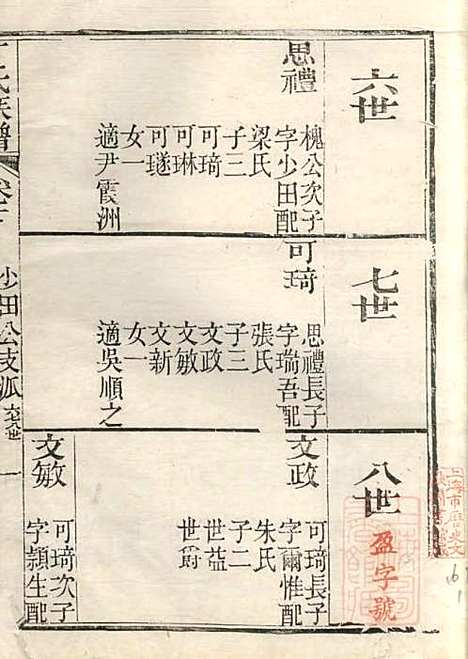 六世
思禮
槐公次子
字少田配
梁氏
子三
可琦
可琳
可璲
女一
適尹霞洲
七世
可琦
思禮長子
字瑞吾配
張氏
子三
文政
文敏
文新
女一
適吳順之
八世
文政
可琦長子
字爾惟配
朱氏
子二
世益
世爵
文敏
可琦次子
字頴生配
氏族譜
少田公支派
一
盈字號
上海市歷史文